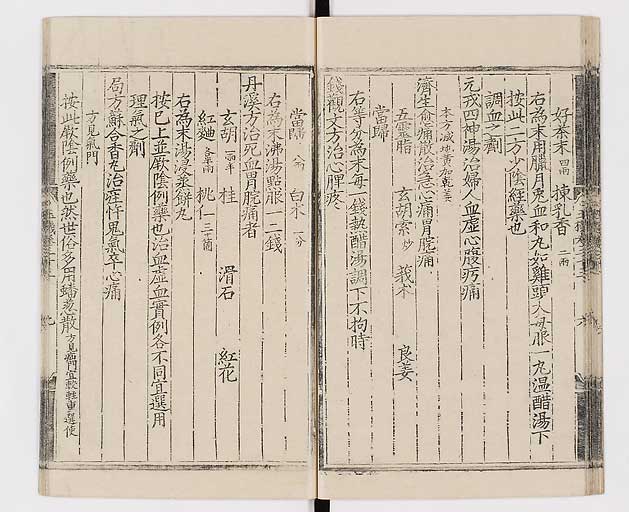 好茶末 四兩 揀乳香 二兩
右為末用臘月兎血和丸如雞頭大每服一丸溫醋湯下
按此二方少陰經藥也
調血之劑
元戎四神湯治婦人血虛心腹㽲痛
本方减地黃加乾姜
濟生愈痛散治急心痛胃脘痛
五靈脂 玄胡索 炒 莪朮 良姜
當歸
右等分為末每一錢熱醋湯調下不拘時
錢觀文方治心脾疼
當歸 八兩 白朮 一分
右為末沸湯點服一二錢
丹溪方治死血胃脘痛者
玄胡 一兩半 桂 滑石 紅花
紅麯 各五錢 桃仁 三十箇
右為末湯浸蒸餠丸
按已上並厥陰例藥也治血虛血實例各不同宜選用
理氣之劑
局方蘇合香丸治疰忤鬼氣卒心痛
方見氣門
按此厥陰例藥也然世俗多用蟠葱散 方見疝門宜較輕重選使